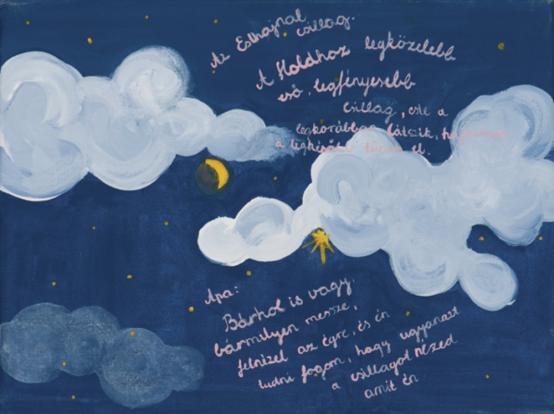 Az Esthajnal
csillag.
A Holdhoz legközelebb
eső legfényesebb
csillag, este a
legkorábban látszik,
a legkésőbb tűnik el.
Apa:
Bárhol is vagy,
bármilyen messze,
felnézel az égre, és én
tudni fogom, hogy ugyanazt
a csillagot nézed
amit én